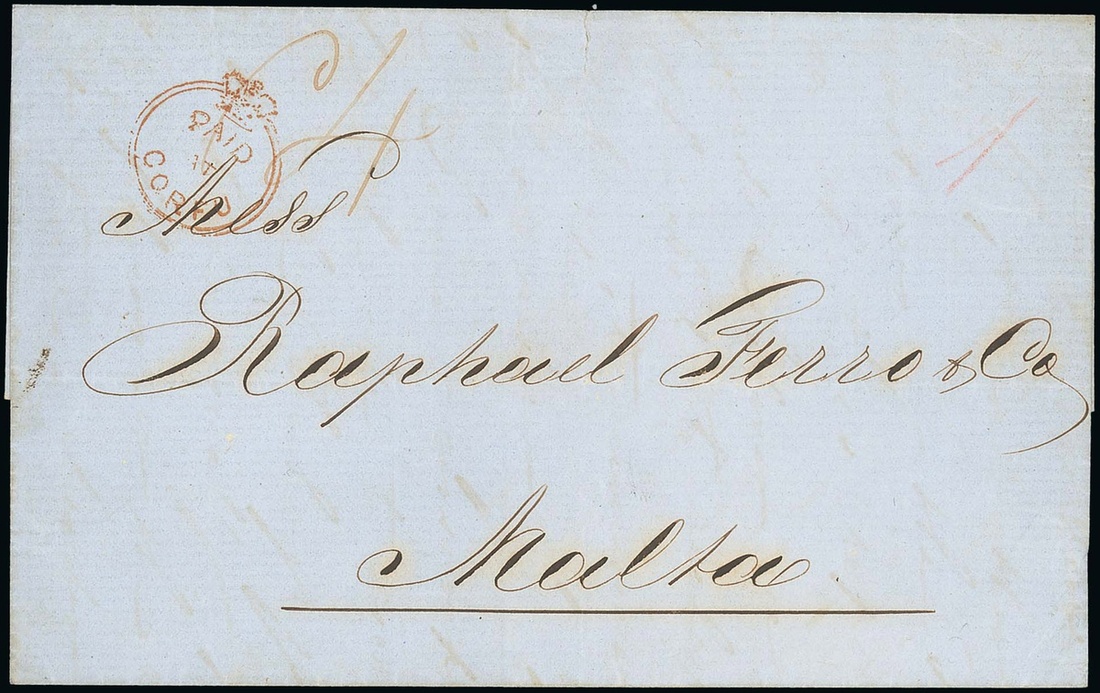 PAID
14
CORFU
4
Mess
Raphael Ferro & Co
Malta